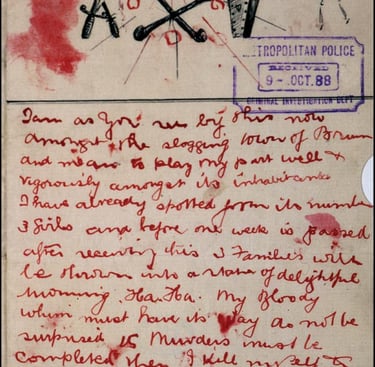 METROPOLITAN POLICE
RECEIVED
9 - OCT. 88
CRIMINAL INVESTIGATION DEPT
I am as you see by this now
amongst the slogging town of Brum
and mean to play my part well &
vigorously amongst its inhabitants
I have already spotted from its number
3 Girls and before one week is passed
after receiving this 3 Families will
be thrown into a state of delightful
mourning. Ha. Ha. My Bloody
whim must have its way do not be
surprised 15 Murders must be
completed then I kill myself to